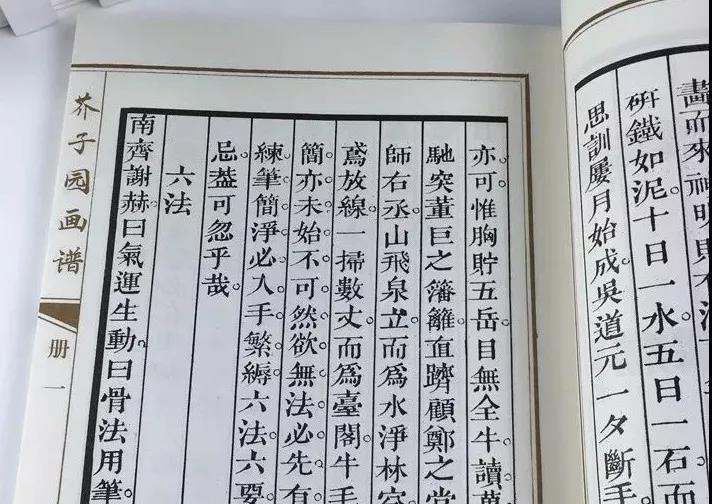 畫而來神明則
硏鐵如泥十日一水五日一石而
思訓屢月始成吳道元一夕斷手
亦可惟胸貯五岳目無全牛讀萬
馳突董巨之藩籬直躋顧鄭之堂
師右丞山飛泉立而為水淨林空
鳶放線一掃數丈而為臺閣牛毛
簡亦未始不可然欲無法必先有
練筆簡淨必入手繁縟六法六要
忌蓋可忽乎哉
六法
南齊謝赫曰氣運生動曰骨法用筆
芥子园画谱
册一